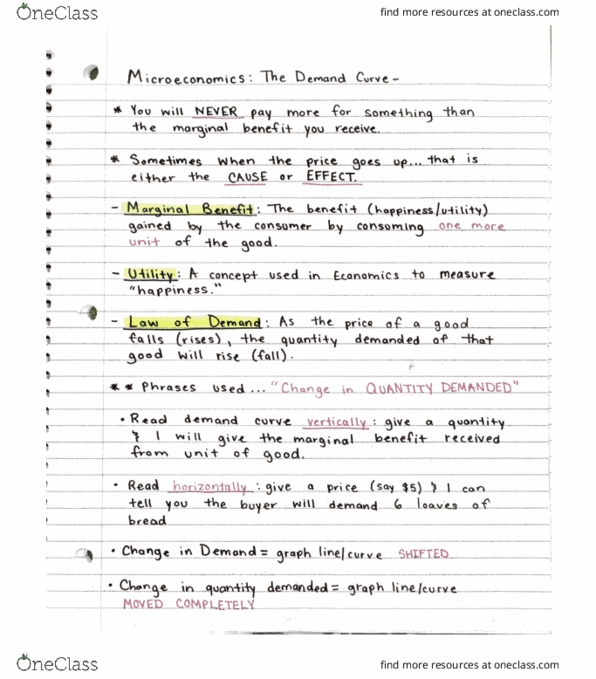 OneClass
find more resources at oneclass.com
Microeconomics: The Demand Curve-
* You will NEVER pay more for something than
the marginal benefit you receive.
* Sometimes when the price goes up... that is
either the CAUSE or EFFECT.
- Marginal Benefit: The benefit (happiness/utility)
gained by the consumer by consuming one more
unit of the good.
- Utility: A concept used in Economics to measure
"happiness."
- Law of Demand: As the price of a good
falls (rises), the quantity demanded of that
good will rise (fall).
* * Phrases used... "Change in QUANTITY DEMANDED"
• Read demand curve vertically: give a quantity
& I will give the marginal benefit received
from unit of good.
• Read horizontally: give a price (say $5) & I can
tell you the buyer will demand 6 loaves of
bread
• Change in Demand = graph line/curve SHIFTED
• Change in quantity demanded = graph line/curve
MOVED COMPLETELY
OneClass
find more resources at oneclass.com